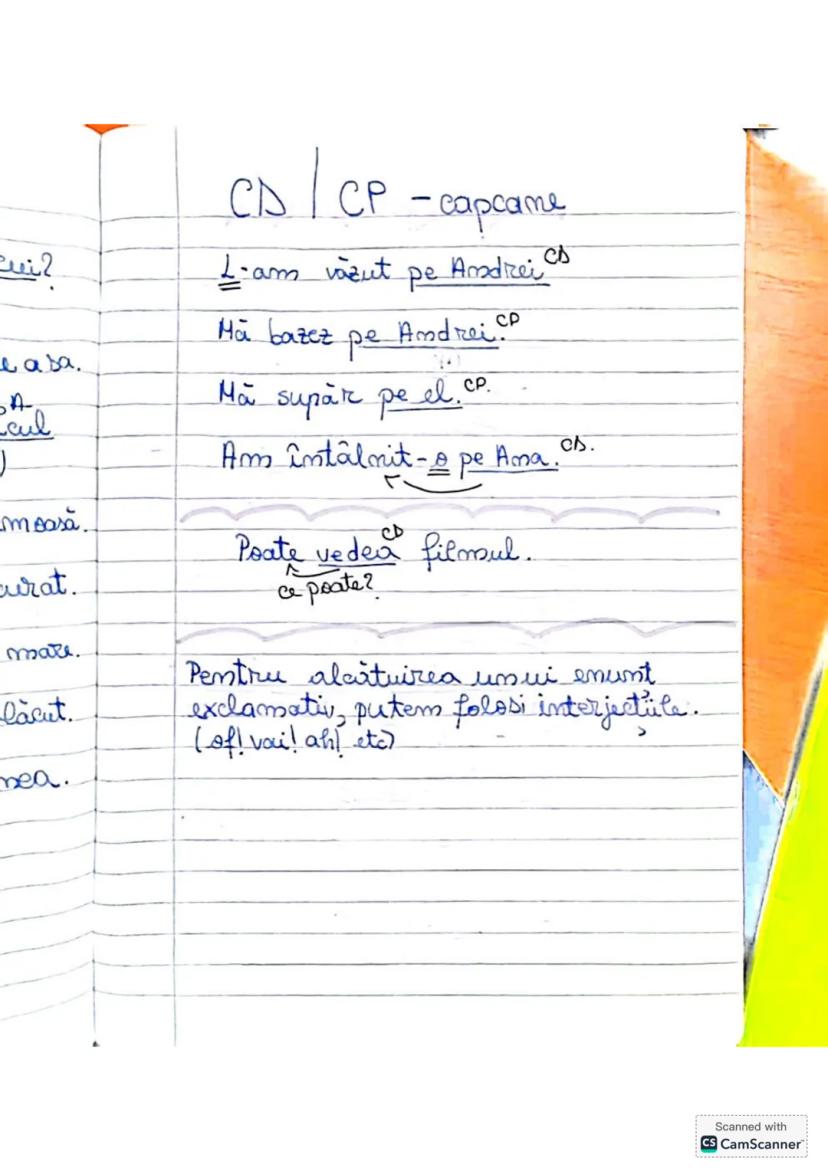 CD | CP - capcane
cui?
L-am văzut pe Andrei CD
Mă bazez pe Andrei. CP
e a sa.
Mă supăr pe el. CP.
Am întâlnit-o pe Ana. CD.
moasă.
CD
Poate vedea filmul.
ce poate?
urat.
mare.
Pentru alcătuirea unui enunț
exclamativ, putem folosi interjecțiile.
lăcut.
(of! vai! ah! etc)
nea.
Scanned with
CS CamScanner